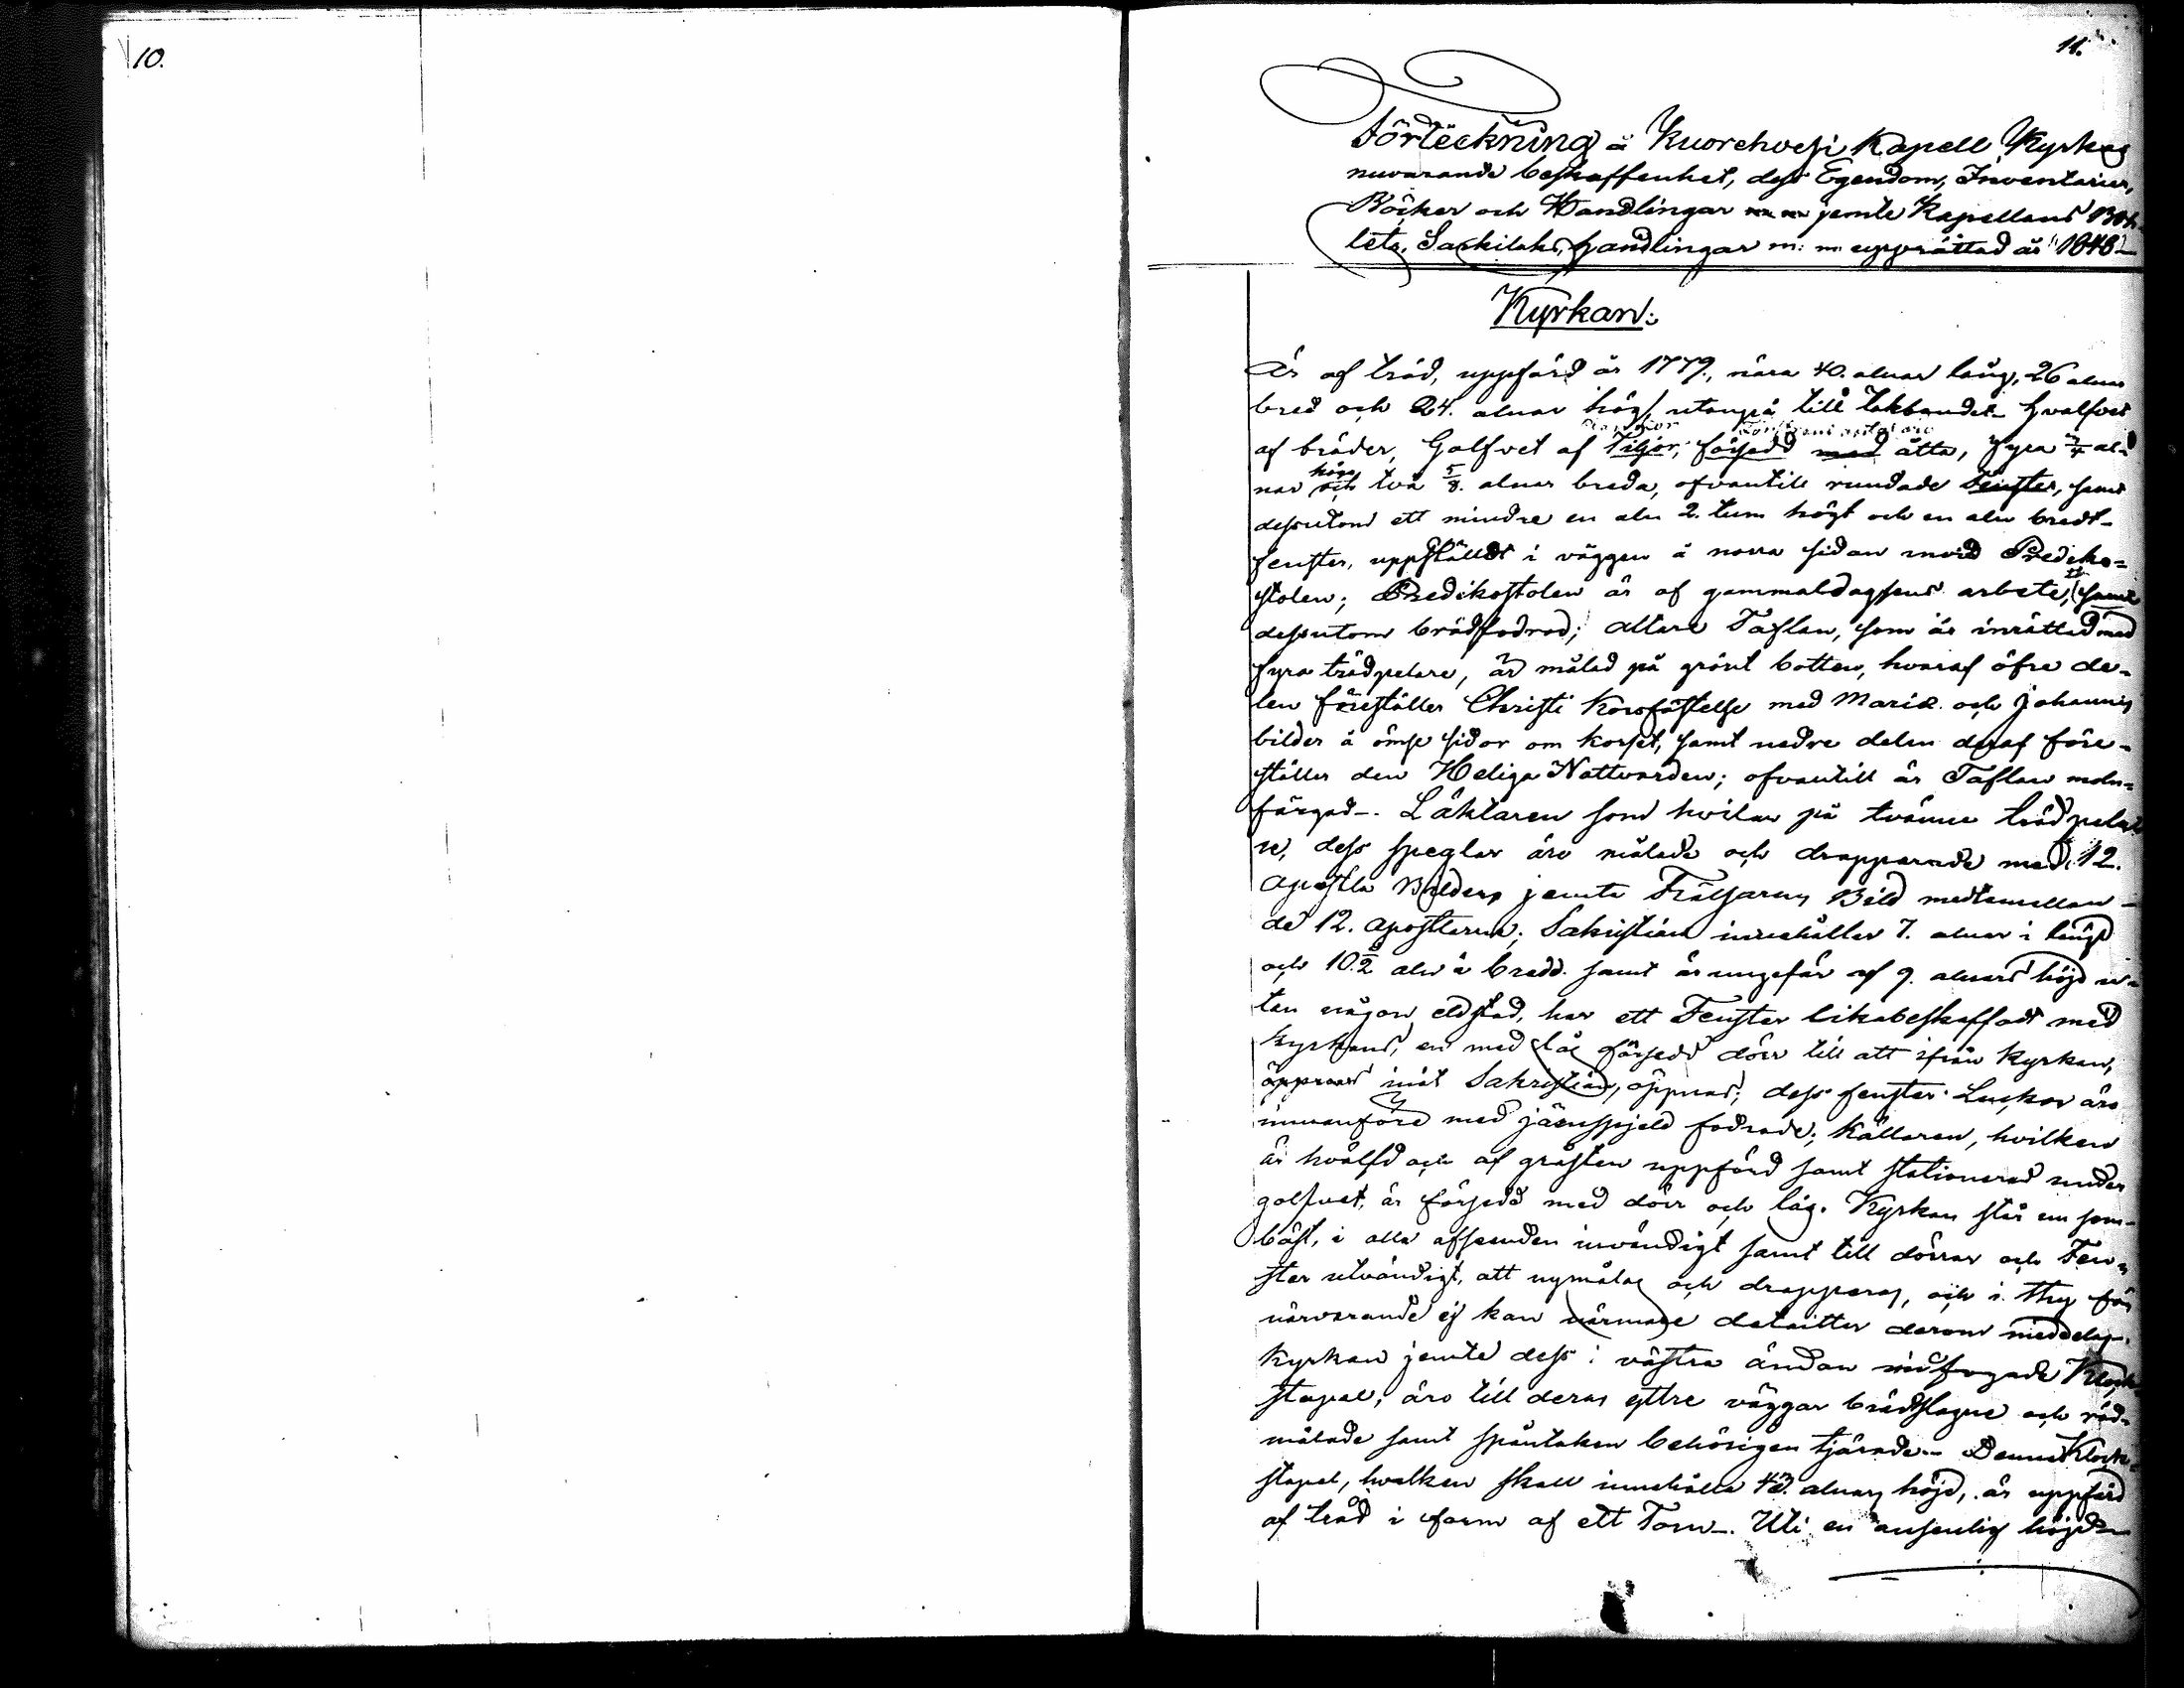 10.
11.
Förteckning å Kuorehvesi Kapell Kyrkas
nuvarande beskaffenhet, dess Egendom, Inventarier,
Böcker och Handlingar jemte Kapellans Bohl
lets, Laskilaks, handlingar m: m upprättad år 1846
Kyrkan:
Är af träd, uppförd år 1779., nära 40. alnar lång, 26 alnar
bred och 24. alnar hög, utanpå till takbandet hvalfvet
af bräder, Golfvet af Tiljor, försedd med åtta, fyra 3/4 al-
nar höga och två 5/8. alnar breda, ofvantill rundade fenster, samt
dessutom ett mindre en aln 2. tum högt och en aln bredt
fenster, uppställdt i väggen å norra sidan invid Prediko=
stolen; Predikostolen är af gammaldagsens arbete, samt
dessutom brädfodrad; altare Taflan, som är inrättad med
fyra trädpelare, är målad på grönt botten, hvaraf öfre de-
len föreställer Christi Korsfästelse med Mariæ och Johannis
bilder å ömse sidor om korset, samt nedre delen deraf före-
ställer den Heliga Nattvarden; ofvantill är Taflan moln=
färgad-. Läktaren som hvilar på tvänne trädpela
re, dess speglar äro målade och drapperade med 12.
Apostla Bilder jemte Frälsarens Bild medtemellan
de 12. Apostlarna; Sakristian innehåller 7. alnar i längd
och 10.½ aln å bredd. samt är ungefär af 9. alnars höjd u-
tan någon eldstad, har ett Fenster likabeskaffadt med
Kyrkans, en med lås försedd dörr till att ifrån Kyrkan,
öppnas inåt Sakristian, öppnas; dess fenster Luckor äro
innanföre med järnspjeld fodrade; Källaren, hvilken
är hvälfd och af gråsten uppförd samt stationerad under
golfvet, är försedd med dörr och lås. Kyrkan står nu som-
bäst, i alla afseenden invändigt samt till dörrar och Fen-
ster utvändigt, att nymålas och drapperas, och i thy för
närvarande ej kan närmare detailter derom meddelas.
Kyrkan jemte dess i västra ändan infogade Klock
stapel, äro till deras yttre väggar brädslagne och röd-
målade samt spåntaken behörigen tjärade.- Denna Klock
stapel, hvilken skall innehålla alnars höjd, är uppförd
af träd i form af ett Torn-. Uti en ansenlig höjd